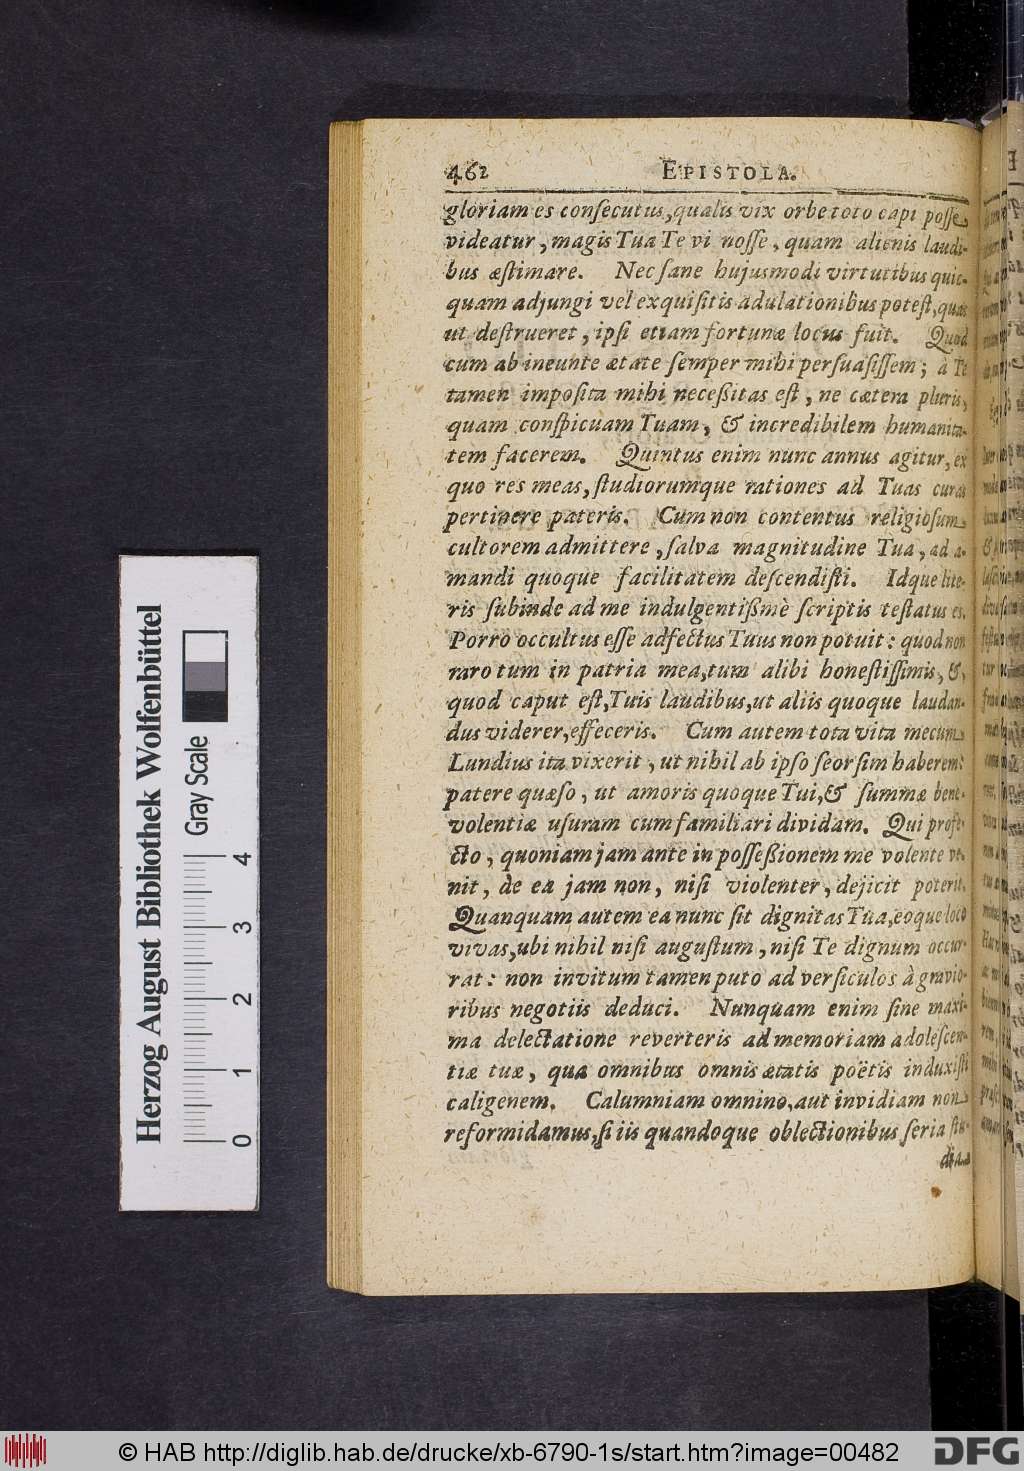 462 EPISTOLA.
gloriam es conſecutus, qualis vix orbe toto capi poſſe
videatur, magis Tua Te vi noſſe, quam alienis laudi-
bus æſtimare. Nec ſane hujusmodi virtutibus quic-
quam adjungi vel exquiſitis adulationibus poteſt, quas
ut deſtrueret, ipſi etiam fortunæ locus fuit. Quod
cum ab ineunte ætate ſemper mihi perſuaſiſſem; à Te
tamen impoſita mihi neceßitas eſt, ne cætera pluris,
quam conſpicuam Tuam, & incredibilem humanita-
tem facerem. Quintus enim nunc annus agitur, ex
quo res meas, ſtudiorumque rationes ad Tuas curas
pertinere pateris. Cum non contentus religioſum
cultorem admittere, ſalva magnitudine Tua, ad a-
mandi quoque facilitatem deſcendiſti. Idque lite-
ris ſubinde ad me indulgentißmè ſcriptis teſtatus es.
Porro occultus eſſe adfectus Tuus non potuit: quod non
raro tum in patria mea, tum alibi honeſtiſſimis, &,
quod caput eſt, Tuis laudibus, ut aliis quoque laudan-
dus viderer, effeceris. Cum autem tota vita mecum
Lundius ita vixerit, ut nihil ab ipſo ſeorſim haberem:
patere quæſo, ut amoris quoque Tui, & ſummæ bene-
volentiæ uſuram cum familiari dividam. Qui profe-
cto, quoniam jam ante in poſſeßionem me volente ve-
nit, de ea jam non, niſi violenter, dejicit poterit.
Quanquam autem ea nunc ſit dignitas Tua, eoque loco
vivas, ubi nihil niſi auguſtum, niſi Te dignum occur-
rat: non invitum tamen puto ad verſiculos à gravio-
ribus negotiis deduci. Nunquam enim ſine maxi-
ma delectatione reverteris ad memoriam adoleſcen-
tiæ tuæ, qua omnibus omnis ætatis poëtis induxiſti
caligenem. Calumniam omnino, aut invidiam non
reformidamus, ſi iis quandoque oblectionibus ſeria ſtu-
dia
Herzog August Bibliothek Wolfenbüttel
Gray Scale
0 1 2 3 4
© HAB http://diglib.hab.de/drucke/xb-6790-1s/start.htm?image=00482
DFG